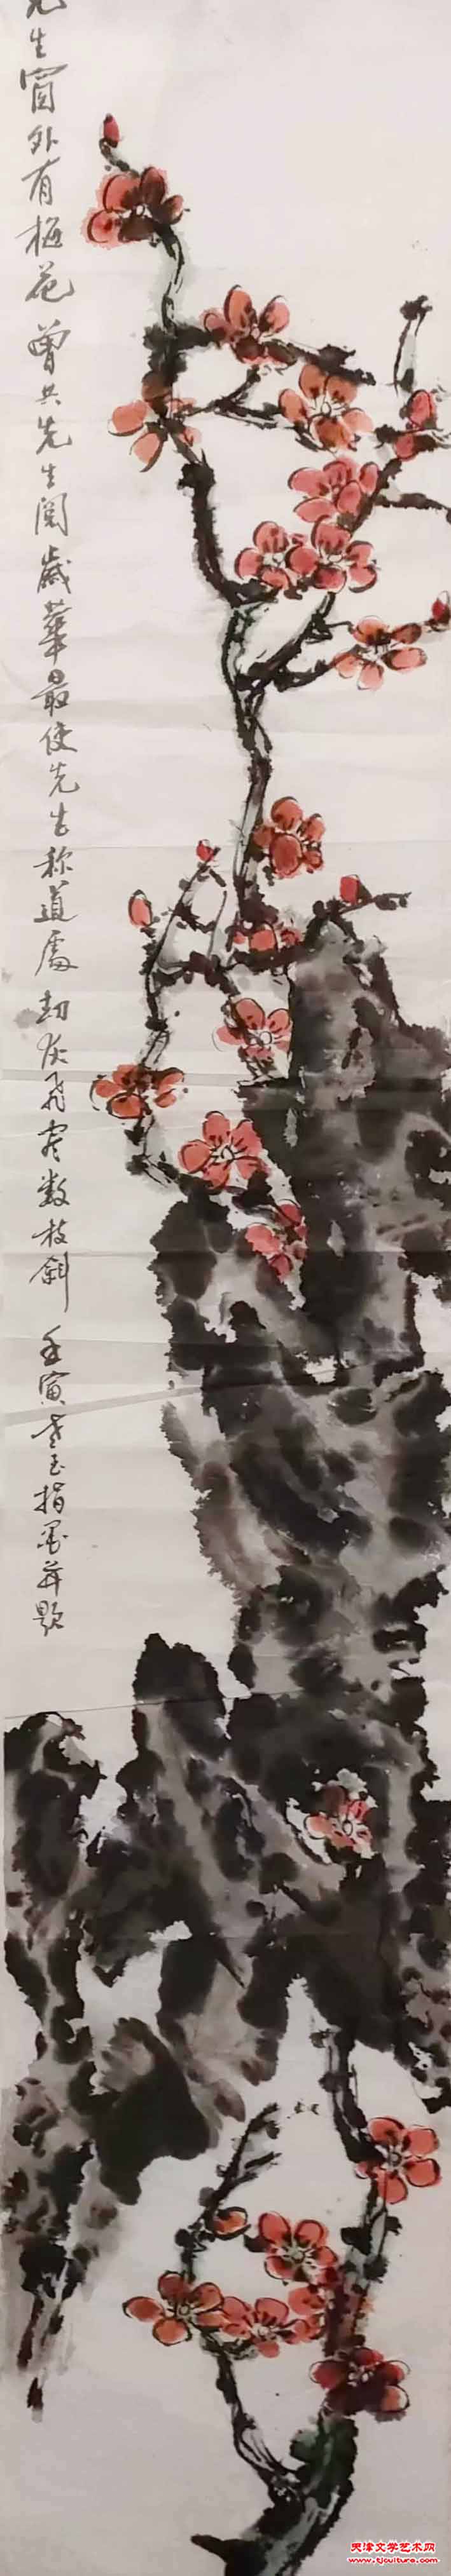 先生窗外有梅花曾共先生阅岁华最使先生称道處劫灰飛尽数枝斜壬寅老玉指墨并题
天津文学艺术网
www.tjculture.com